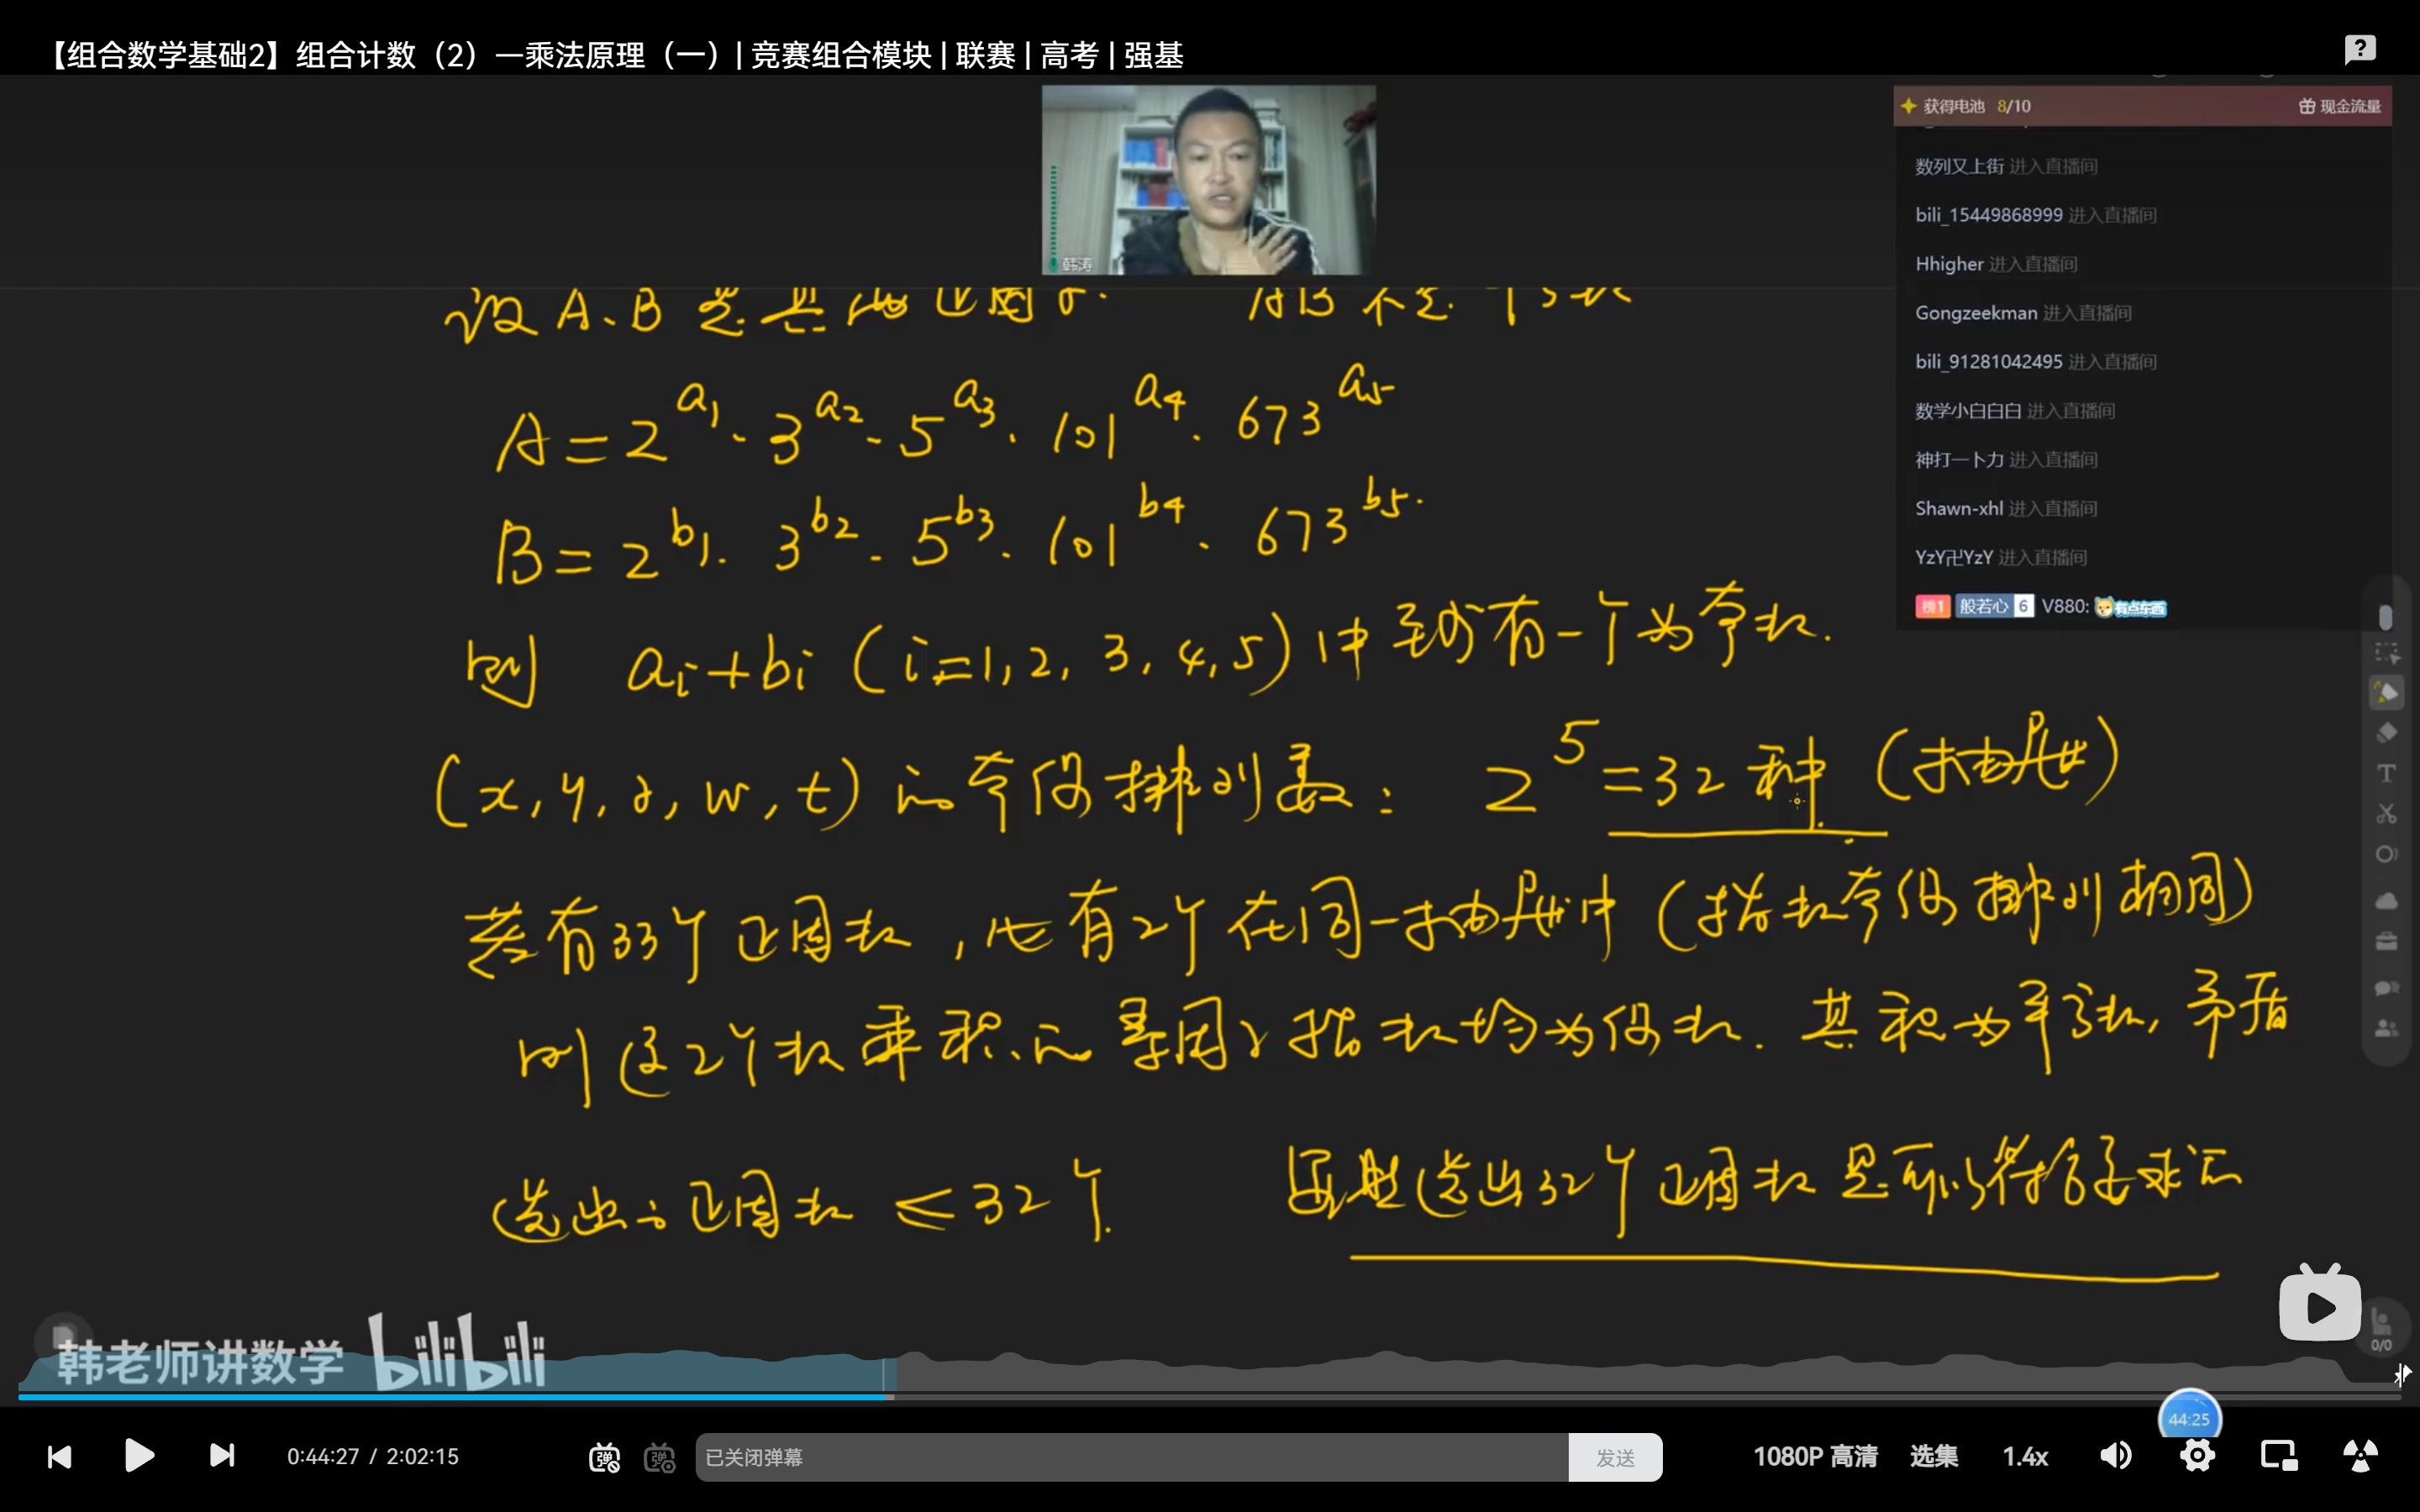 【组合数学基础2】组合计数（2）—乘法原理（一）| 竞赛组合模块 | 联赛 | 高考 | 强基
获得电池 8/10 现金流量
数列又上街 进入直播间
bili_15449868999 进入直播间
Hhigher 进入直播间
Gongzeekman 进入直播间
bili_91281042495 进入直播间
数学小白白白 进入直播间
神打一卜力 进入直播间
Shawn-xhl 进入直播间
YzY卍YzY 进入直播间
榜1 般若心 6 V880: 有点东西
韩涛
设 A、B 是其
A = 2^a1 · 3^a2 · 5^a3 · 101^a4 · 673^a5
B = 2^b1 · 3^b2 · 5^b3 · 101^b4 · 673^b5.
则 ai+bi (i=1,2,3,4,5) 中至少有一个为奇数.
(x,y,z,w,t) 的奇偶排列数: 2^5=32种 (抽屉)
若有33个正因数,必有2个在同一抽屉中(指数奇偶排列相同)
则这2个数乘积的素因子指数均为偶数. 其积为平方数,矛盾
选出的正因数 ≤ 32个.
选出32个正因数是可以符合要求的
韩老师讲数学 bilibili
0/0
44:25
0:44:27 / 2:02:15
弹
弹
已关闭弹幕
发送
1080P 高清
选集
1.4x